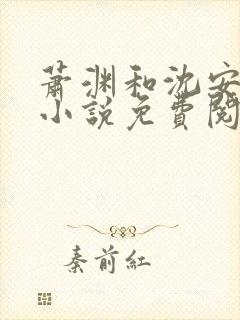 蕭渊和沈安
小説免費閱
秦前紅